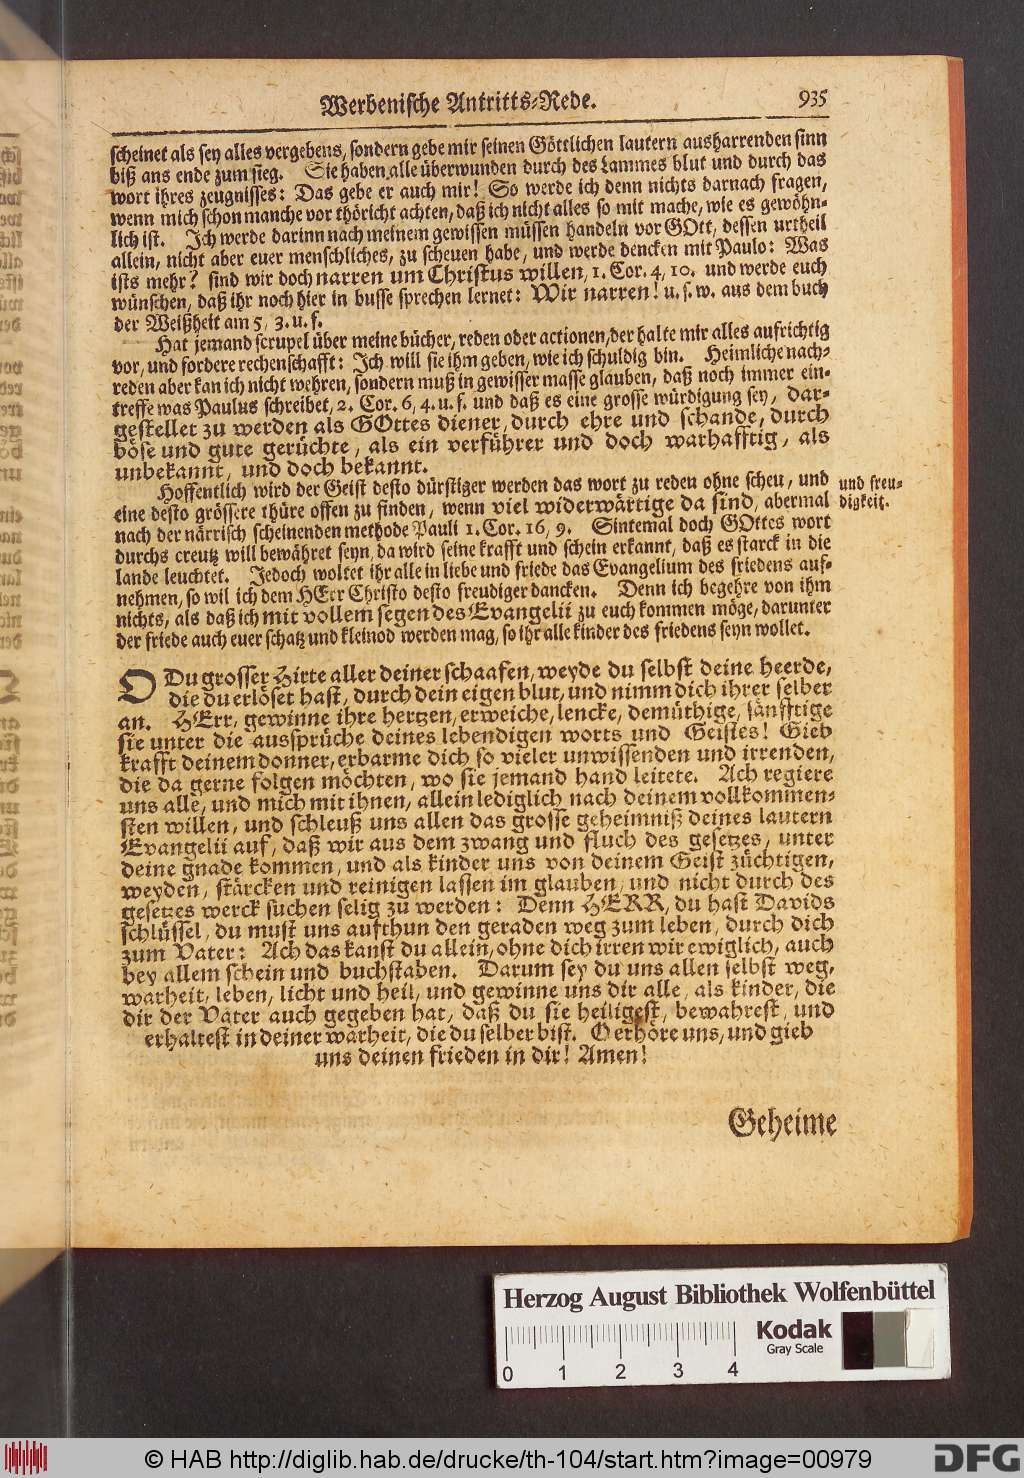 Werbenische Antritts-Rede. 935
scheinet als sey alles vergebens, sondern gebe mir seinen Göttlichen lautern ausharrenden sinn
biß ans ende zum sieg. Sie haben alle überwunden durch des Lammes blut und durch das
wort ihres zeugnisses: Das gebe er auch mir! So werde ich denn nichts darnach fragen,
wenn mich schon manche vor thöricht achten, daß ich nicht alles so mit mache, wie es gewöhn-
lich ist. Ich werde darinn nach meinem gewissen müssen handeln vor GOtt, dessen urtheil
allein, nicht aber euer menschliches, zu scheuen habe, und werde dencken mit Paulo: Was
ists mehr? sind wir doch narren um Christus willen, 1. Cor. 4, 10. und werde euch
wünschen, daß ihr noch hier in busse sprechen lernet: Wir narren! u. s. w. aus dem buch
der Weißheit am 5, 3. u. f.
Hat jemand scrupel über meine bücher, reden oder actionen, der halte mir alles aufrichtig
vor, und fordere rechenschafft: Ich will sie ihm geben, wie ich schuldig bin. Heimliche nach-
reden aber kan ich nicht wehren, sondern muß in gewisser masse glauben, daß noch immer ein-
treffe was Paulus schreibet, 2. Cor. 6, 4. u. f. und daß es eine grosse würdigung sey, dar-
gestellet zu werden als GOttes diener, durch ehre und schande, durch
böse und gute gerüchte, als ein verführer und doch warhafftig, als
unbekannt, und doch bekannt.
Hoffentlich wird der Geist desto dürstiger werden das wort zu reden ohne scheu, und
eine desto grössere thüre offen zu finden, wenn viel widerwärtige da sind, abermal
nach der närrisch scheinenden methode Pauli 1. Cor. 16, 9. Sintemal doch GOttes wort
durchs creutz will bewähret seyn, da wird seine krafft und schein erkannt, daß es starck in die
lande leuchtet. Jedoch woltet ihr alle in liebe und friede das Evangelium des friedens auf-
nehmen, so wil ich dem HErr Christo desto freudiger dancken. Denn ich begehre von ihm
nichts, als daß ich mit vollem segen des Evangelii zu euch kommen möge, darunter
der friede auch euer schatz und kleinod werden mag, so ihr alle kinder des friedens seyn wollet.
und freu-
digkeit.
O Du grosser Hirte aller deiner schaafen, weyde du selbst deine heerde,
die du erlöset hast, durch dein eigen blut, und nimm dich ihrer selber
an. HErr, gewinne ihre hertzen, erweiche, lencke, demüthige, sänfftige
sie unter die aussprüche deines lebendigen worts und Geistes! Gieb
krafft deinem donner, erbarme dich so vieler unwissenden und irrenden,
die da gerne folgen möchten, wo sie jemand hand leitete. Ach regiere
uns alle, und mich mit ihnen, allein lediglich nach deinem vollkommen-
sten willen, und schleuß uns allen das grosse geheimniß deines lautern
Evangelii auf, daß wir aus dem zwang und fluch des gesetzes, unter
deine gnade kommen, und als kinder uns von deinem Geist züchtigen,
weyden, stärcken und reinigen lassen im glauben, und nicht durch des
gesetzes werck suchen selig zu werden: Denn HERR, du hast Davids
schlüssel, du must uns aufthun den geraden weg zum leben, durch dich
zum Vater: Ach das kanst du allein, ohne dich irren wir ewiglich, auch
bey allem schein und buchstaben. Darum sey du uns allen selbst weg,
warheit, leben, licht und heil, und gewinne uns dir alle, als kinder, die
dir der Vater auch gegeben hat, daß du sie heiligest, bewahrest, und
erhaltest in deiner warheit, die du selber bist. O erhöre uns, und gieb
uns deinen frieden in dir! Amen!
Geheime
Herzog August Bibliothek Wolfenbüttel
Kodak
Gray Scale
0 1 2 3 4
© HAB http://diglib.hab.de/drucke/th-104/start.htm?image=00979
DFG